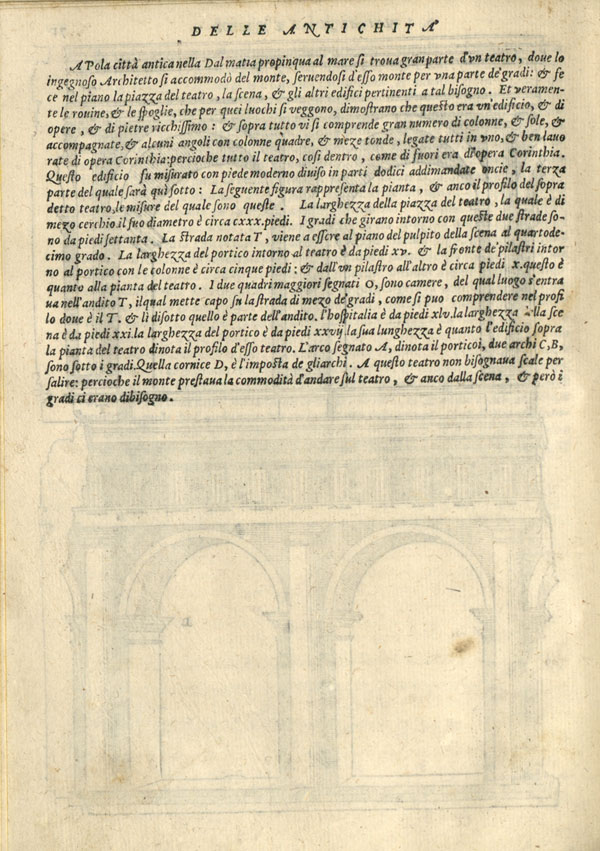 DELLE ANTICHITÀ
A Pola città antica nella Dalmatia propinqua al mare si troua gran parte d'vn teatro, doue lo
ingegnoso Architetto si accommodò del monte, seruendosi d'esso monte per vna parte de' gradi: & fe
ce nel piano la piazza del teatro, la scena, & gli altri edifici pertinenti a tal bisogno. Et veramen-
te le rouine, & le spoglie, che per quei luochi si veggono, dimostrano che questo era vn'edificio, & di
opere, & di pietre ricchissimo: & sopra tutto vi si comprende gran numero di colonne, & sole, &
accompagnate, & alcuni angoli con colonne quadre, & meze tonde, legate tutti in vno, & ben lauo
rate di opera Corinthia: percioche tutto il teatro, cosi dentro, come di fuori era d'opera Corinthia.
Questo edificio fu misurato con piede moderno diuiso in parti dodici addimandate oncie, la terza
parte del quale sarà quì sotto: La seguente figura rappresenta la pianta, & anco il profilo del sopra
detto teatro, le misure del quale sono queste. La larghezza della piazza del teatro, la quale è di
mezo cerchio. il suo diametro è circa cxxx. piedi. I gradi che girano intorno con queste due strade so-
no da piedi settanta. La strada notata T, viene a essere al piano del pulpito della scena al quartode-
cimo grado. La larghezza del portico intorno al teatro è da piedi xv. & la fronte de' pilastri intor
no al portico con le colonne è circa cinque piedi: & dall'vn pilastro all'altro è circa piedi x. questo è
quanto alla pianta del teatro. I due quadri maggiori segnati O, sono camere, del qual luogo s'entra
ua nell'andito T, il qual mette capo su la strada di mezo de' gradi, come si puo comprendere nel profi
lo doue è il T. & lì disotto quello è parte dell'andito. l'hospitalia è da piedi xlv. la larghezza della sce
na è da piedi xxi. la larghezza del portico è da piedi xxvij. la sua lunghezza è quanto l'edificio sopra
la pianta del teatro dinota il profilo d'esso teatro. L'arco segnato A, dinota il portico: i due archi C, B,
sono sotto i gradi. Quella cornice D, è l'imposta de gli archi. A questo teatro non bisognaua scale per
salire: percioche il monte prestaua la commodità d'andare sul teatro, & anco dalla scena, & però i
gradi ci erano di bisogno.